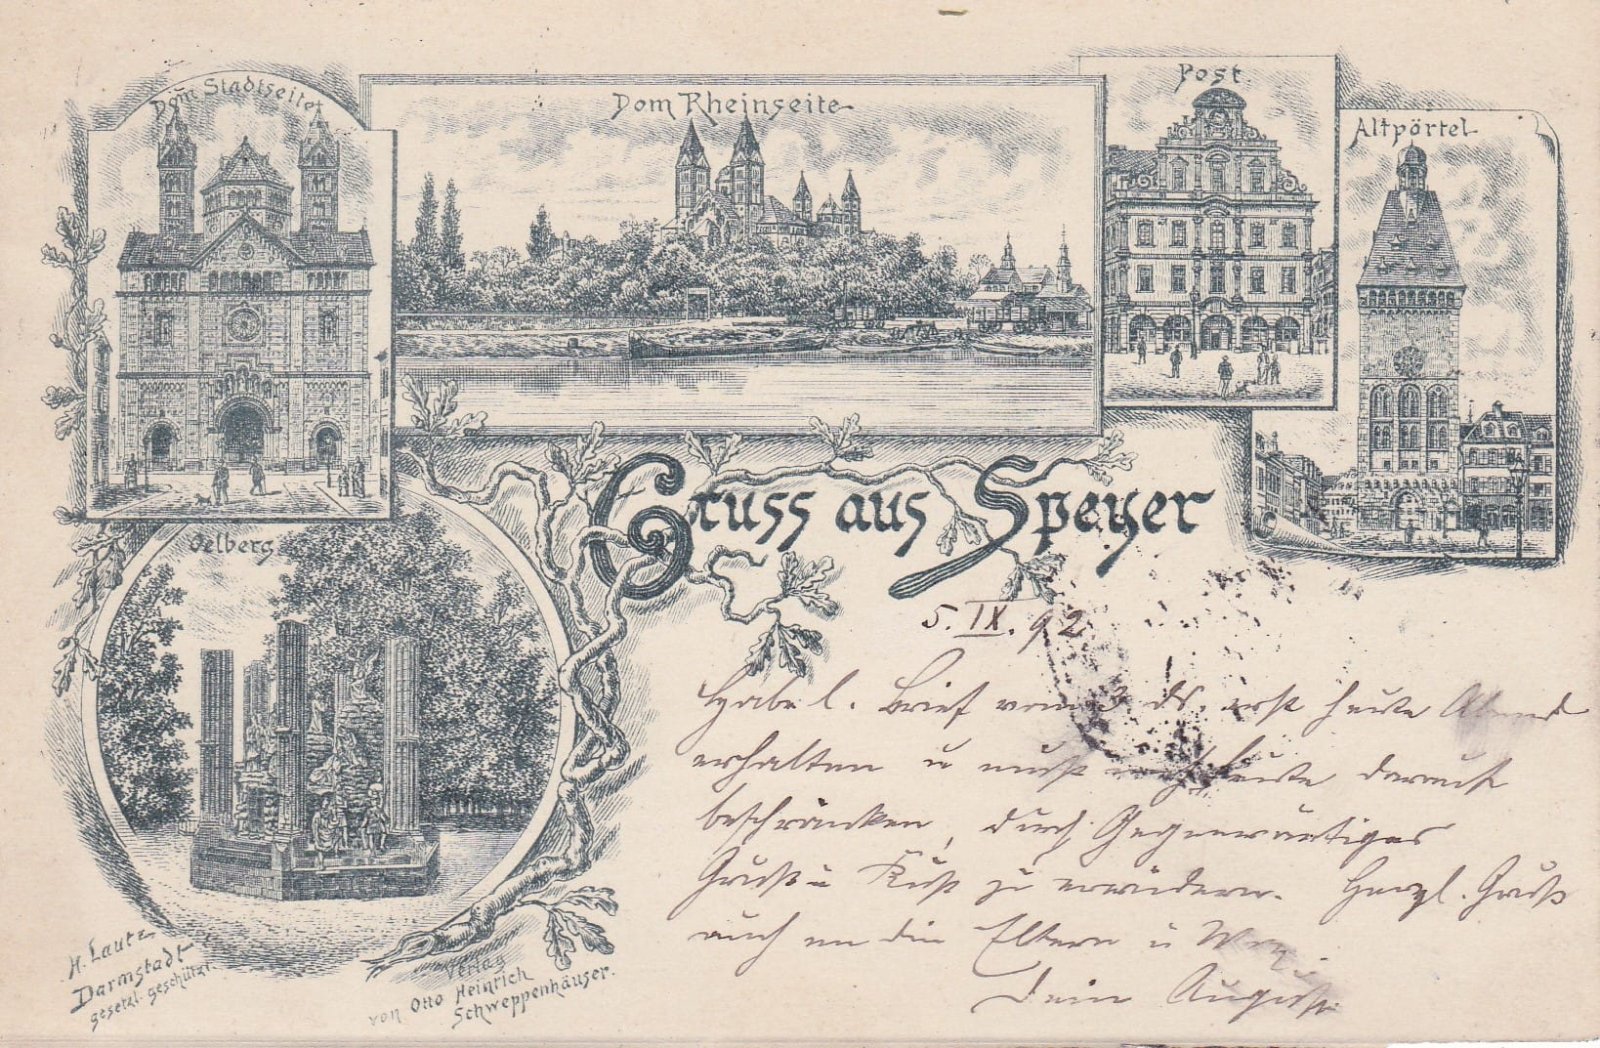 Dom Stadtseite
Dom Rheinseite
Post
Altpörtel
Gruss aus Speyer
Oelberg
5. IX. 92
Habe l. Brief vom 3. ds. erst heute Abend
erhalten u muß mich heute darauf
beschränken, durch Gegenwärtiges
Gruß u Kuß zu erwidern. Herzl. Gruß
auch an die Eltern u
Dein August
H. Lautz
Darmstadt
gesetzl. geschützt.
Verlag
von Otto Heinrich
Schweppenhäuser.